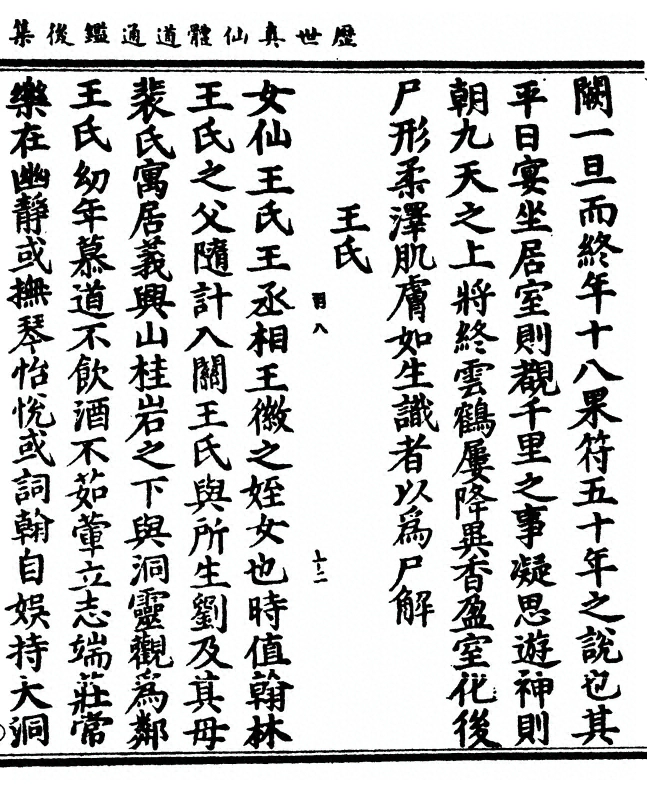 歷世真仙體道通鑑後集
闕一旦而終年十八果符五十年之說也其
平日宴坐居室則觀千里之事凝思遊神則
朝九天之上將終雲鶴屢降異香盈室化後
尸形柔澤肌膚如生識者以為尸解
王氏
羽八
十二
女仙王氏王丞相王徽之姪女也時值翰林
王氏之父隨計入關王氏與所生劉及其母
裴氏寓居義興山桂岩之下與洞靈觀為鄰
王氏幼年慕道不飲酒不茹葷立志端莊常
樂在幽靜或撫琴怡悅或詞翰自娛持大洞